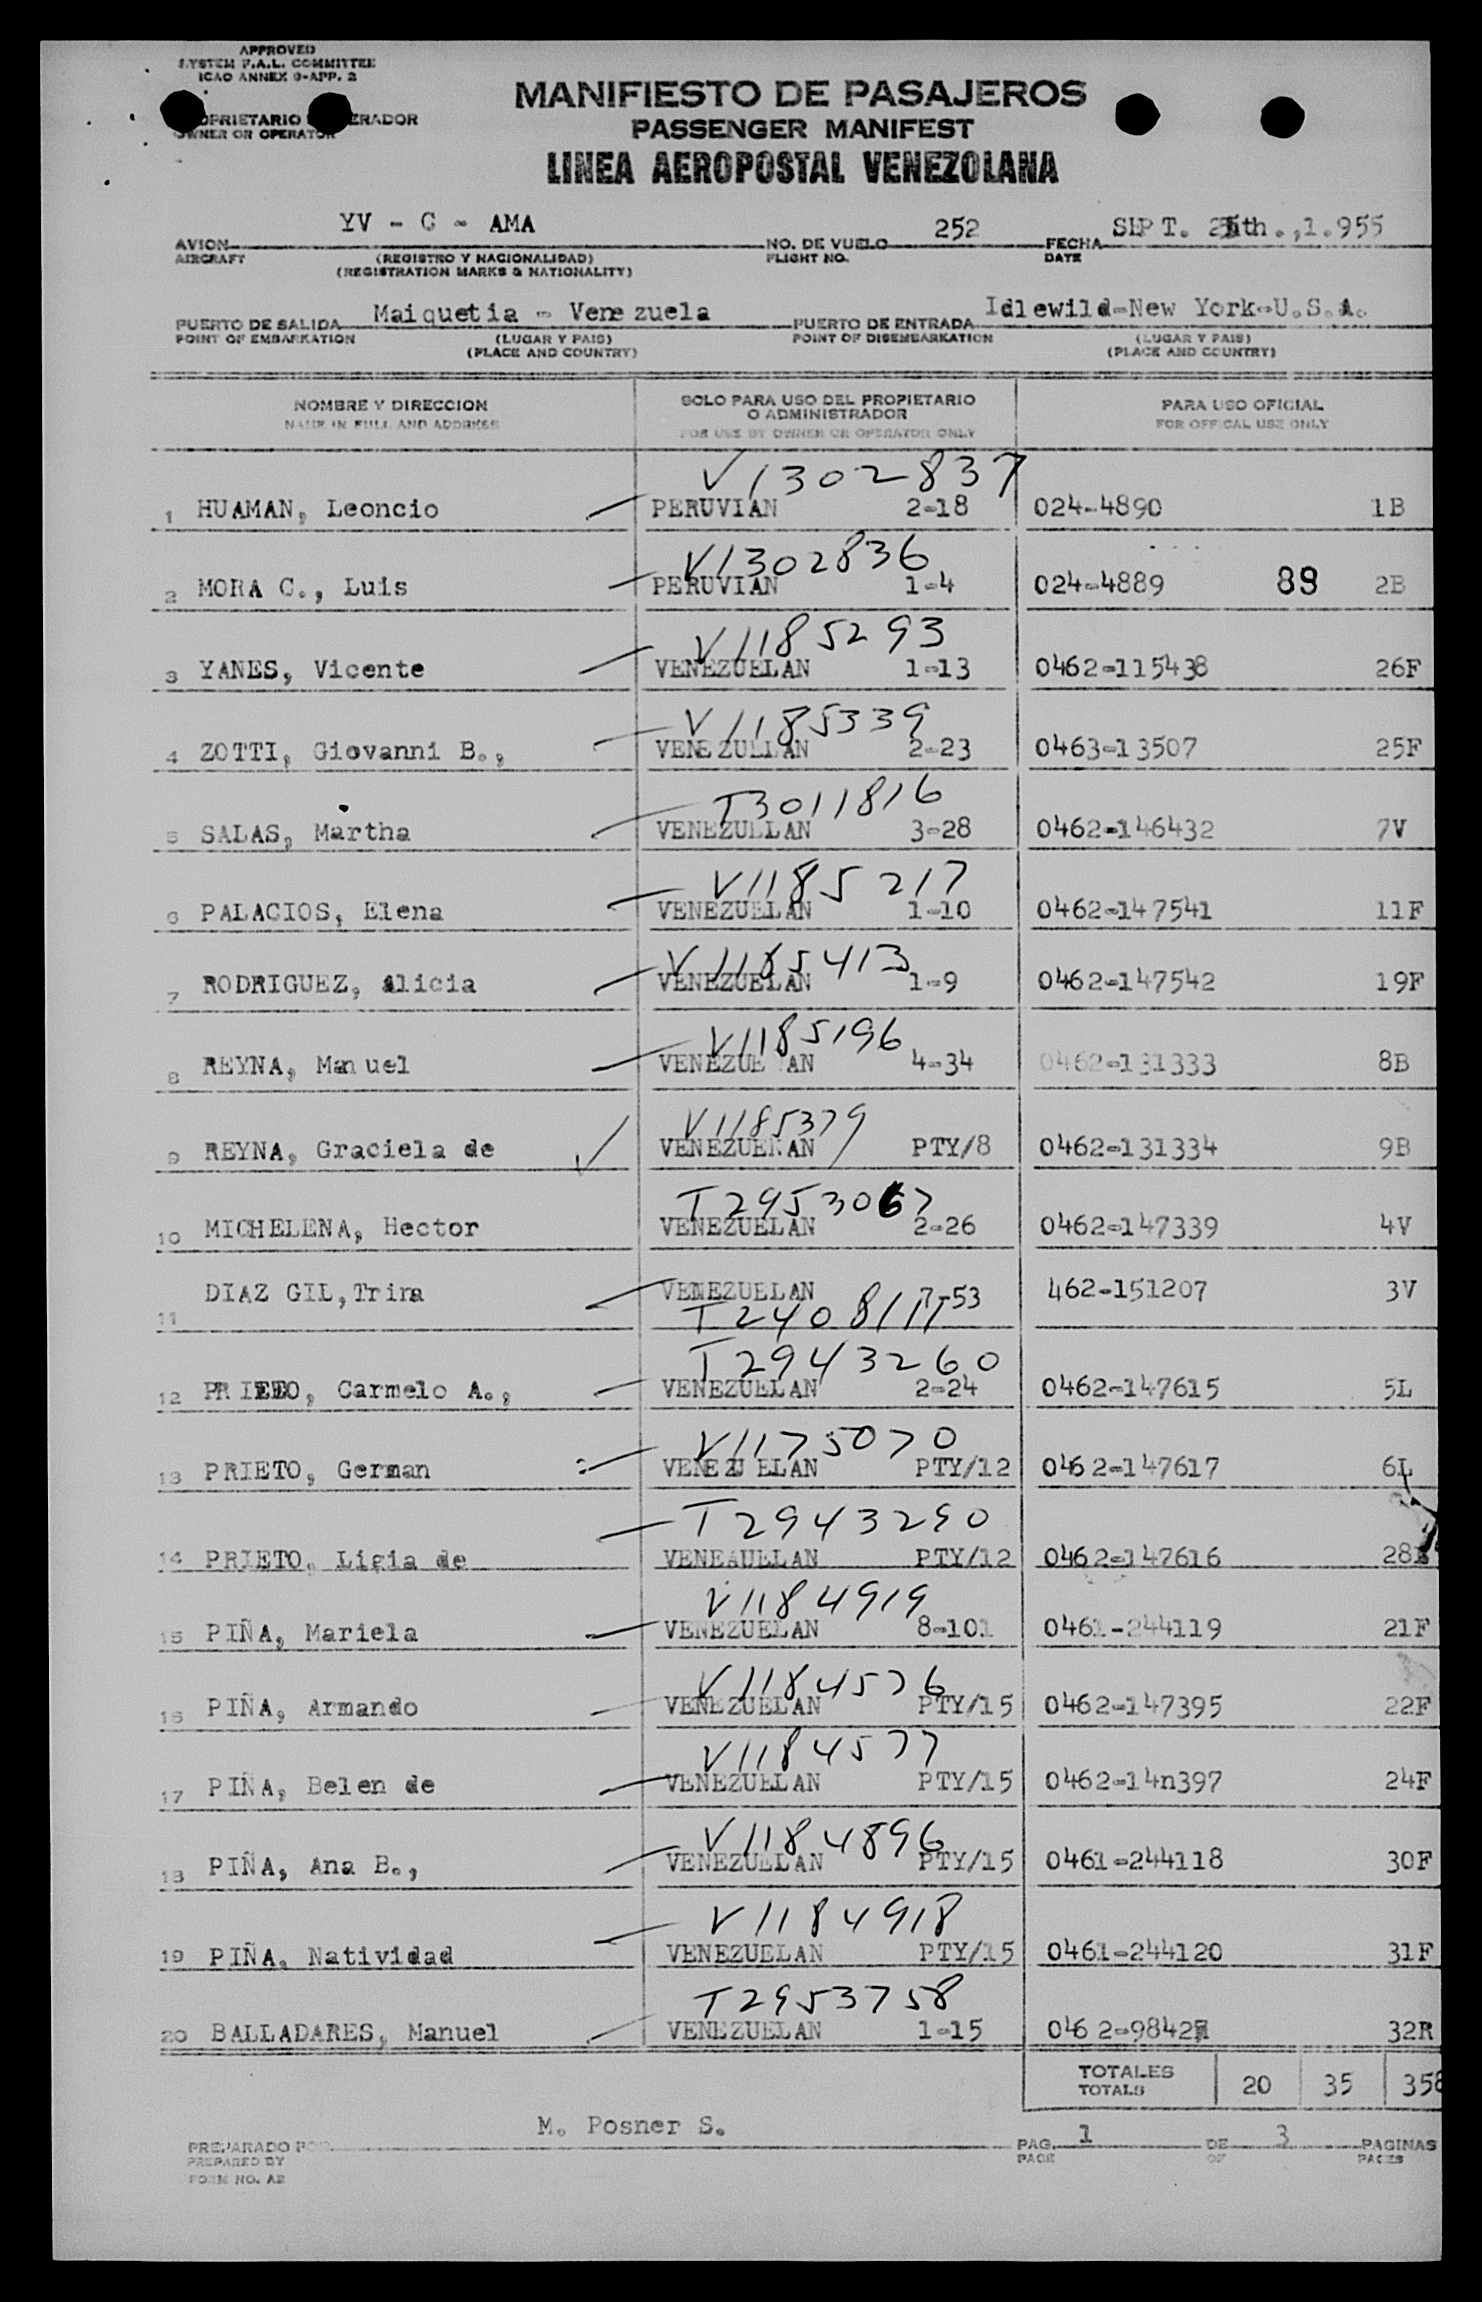 APPROVED
SYSTEM F.A.L. COMMITTEE
ICAO ANNEX 9-APP. 2
OWNER OR OPERATOR
MANIFIESTO DE PASAJEROS
PASSENGER MANIFEST
LINEA AEROPOSTAL VENEZOLANA
YV - C - AMA 252 SEPT. 1.955
AVION NO. DE VUELO FECHA
AIRCRAFT (REGISTRO Y NACIONALIDAD) FLIGHT NO. DATE
(REGISTRATION MARKS & NATIONALITY)
Maiquetia - Venezuela Idlewild-New York-U.S.A.
PUERTO DE SALIDA PUERTO DE ENTRADA
POINT OF EMBARKATION (LUGAR Y PAIS) POINT OF DISEMBARKATION (LUGAR Y PAIS)
(PLACE AND COUNTRY) (PLACE AND COUNTRY)
NOMBRE Y DIRECCION SOLO PARA USO DEL PROPIETARIO PARA USO OFICIAL
O ADMINISTRADOR
NAME IN FULL AND ADDRESS FOR USE BY OWNER OR OPERATOR ONLY FOR OFFICAL USE ONLY
V1302837
1 HUAMAN, Leoncio PERUVIAN 2-18 024-4890 1B
V1302836
2 MORA C., Luis PERUVIAN 1-4 024-4889 89 2B
V1185293
3 YANES, Vicente VENEZUELAN 1-13 0462-115438 26F
V1185339
4 ZOTTI, Giovanni B., VENEZUELAN 2-23 0463-13507 25F
T3011816
5 SALAS, Martha VENEZUELAN 3-28 0462-146432 7V
V1185217
6 PALACIOS, Elena VENEZUELAN 1-10 0462-147541 11F
V1185413
7 RODRIGUEZ, Alicia VENEZUELAN 1-9 0462-147542 19F
V1185196
8 REYNA, Manuel VENEZUE AN 4-34 0462-131333 8B
V1185379
9 REYNA, Graciela de VENEZUELAN PTY/8 0462-131334 9B
T2953067
10 MICHELENA, Hector VENEZUELAN 2-26 0462-147339 4V
11 DIAZ GIL, Trina VENEZUELAN 7-53 462-151207 3V
T2943260
12 Carmelo A., VENEZUELAN 2-24 0462-147615 5L
V1175070
13 PRIETO, German VENEZUELAN PTY/12 0462-147617 6L
T2943290
14 PRIETO, Ligia de VENEAUELAN PTY/12 0462-147616
V1184919
15 PIÑA, Mariela VENEZUELAN 8-101 0461-244119 21F
V1184576
16 PIÑA, Armando VENEZUELAN PTY/15 0462-147395 22F
V1184577
17 PIÑA, Belen de VENEZUELAN PTY/15 0462-14n397 24F
V1184896
18 PIÑA, Ana B., VENEZUELAN PTY/15 0461-244118 30F
V1184918
19 PIÑA, Natividad VENEZUELAN PTY/15 0461-244120 31F
T2953758
20 BALLADARES, Manuel VENEZUELAN 1-15 32R
TOTALES
TOTALS 20 35 358
M. Posner S.
PREPARADO POR PAG. 1 DE 3 PAGINAS
PREPARED BY PAGE OF PAGES
FORM NO. A2